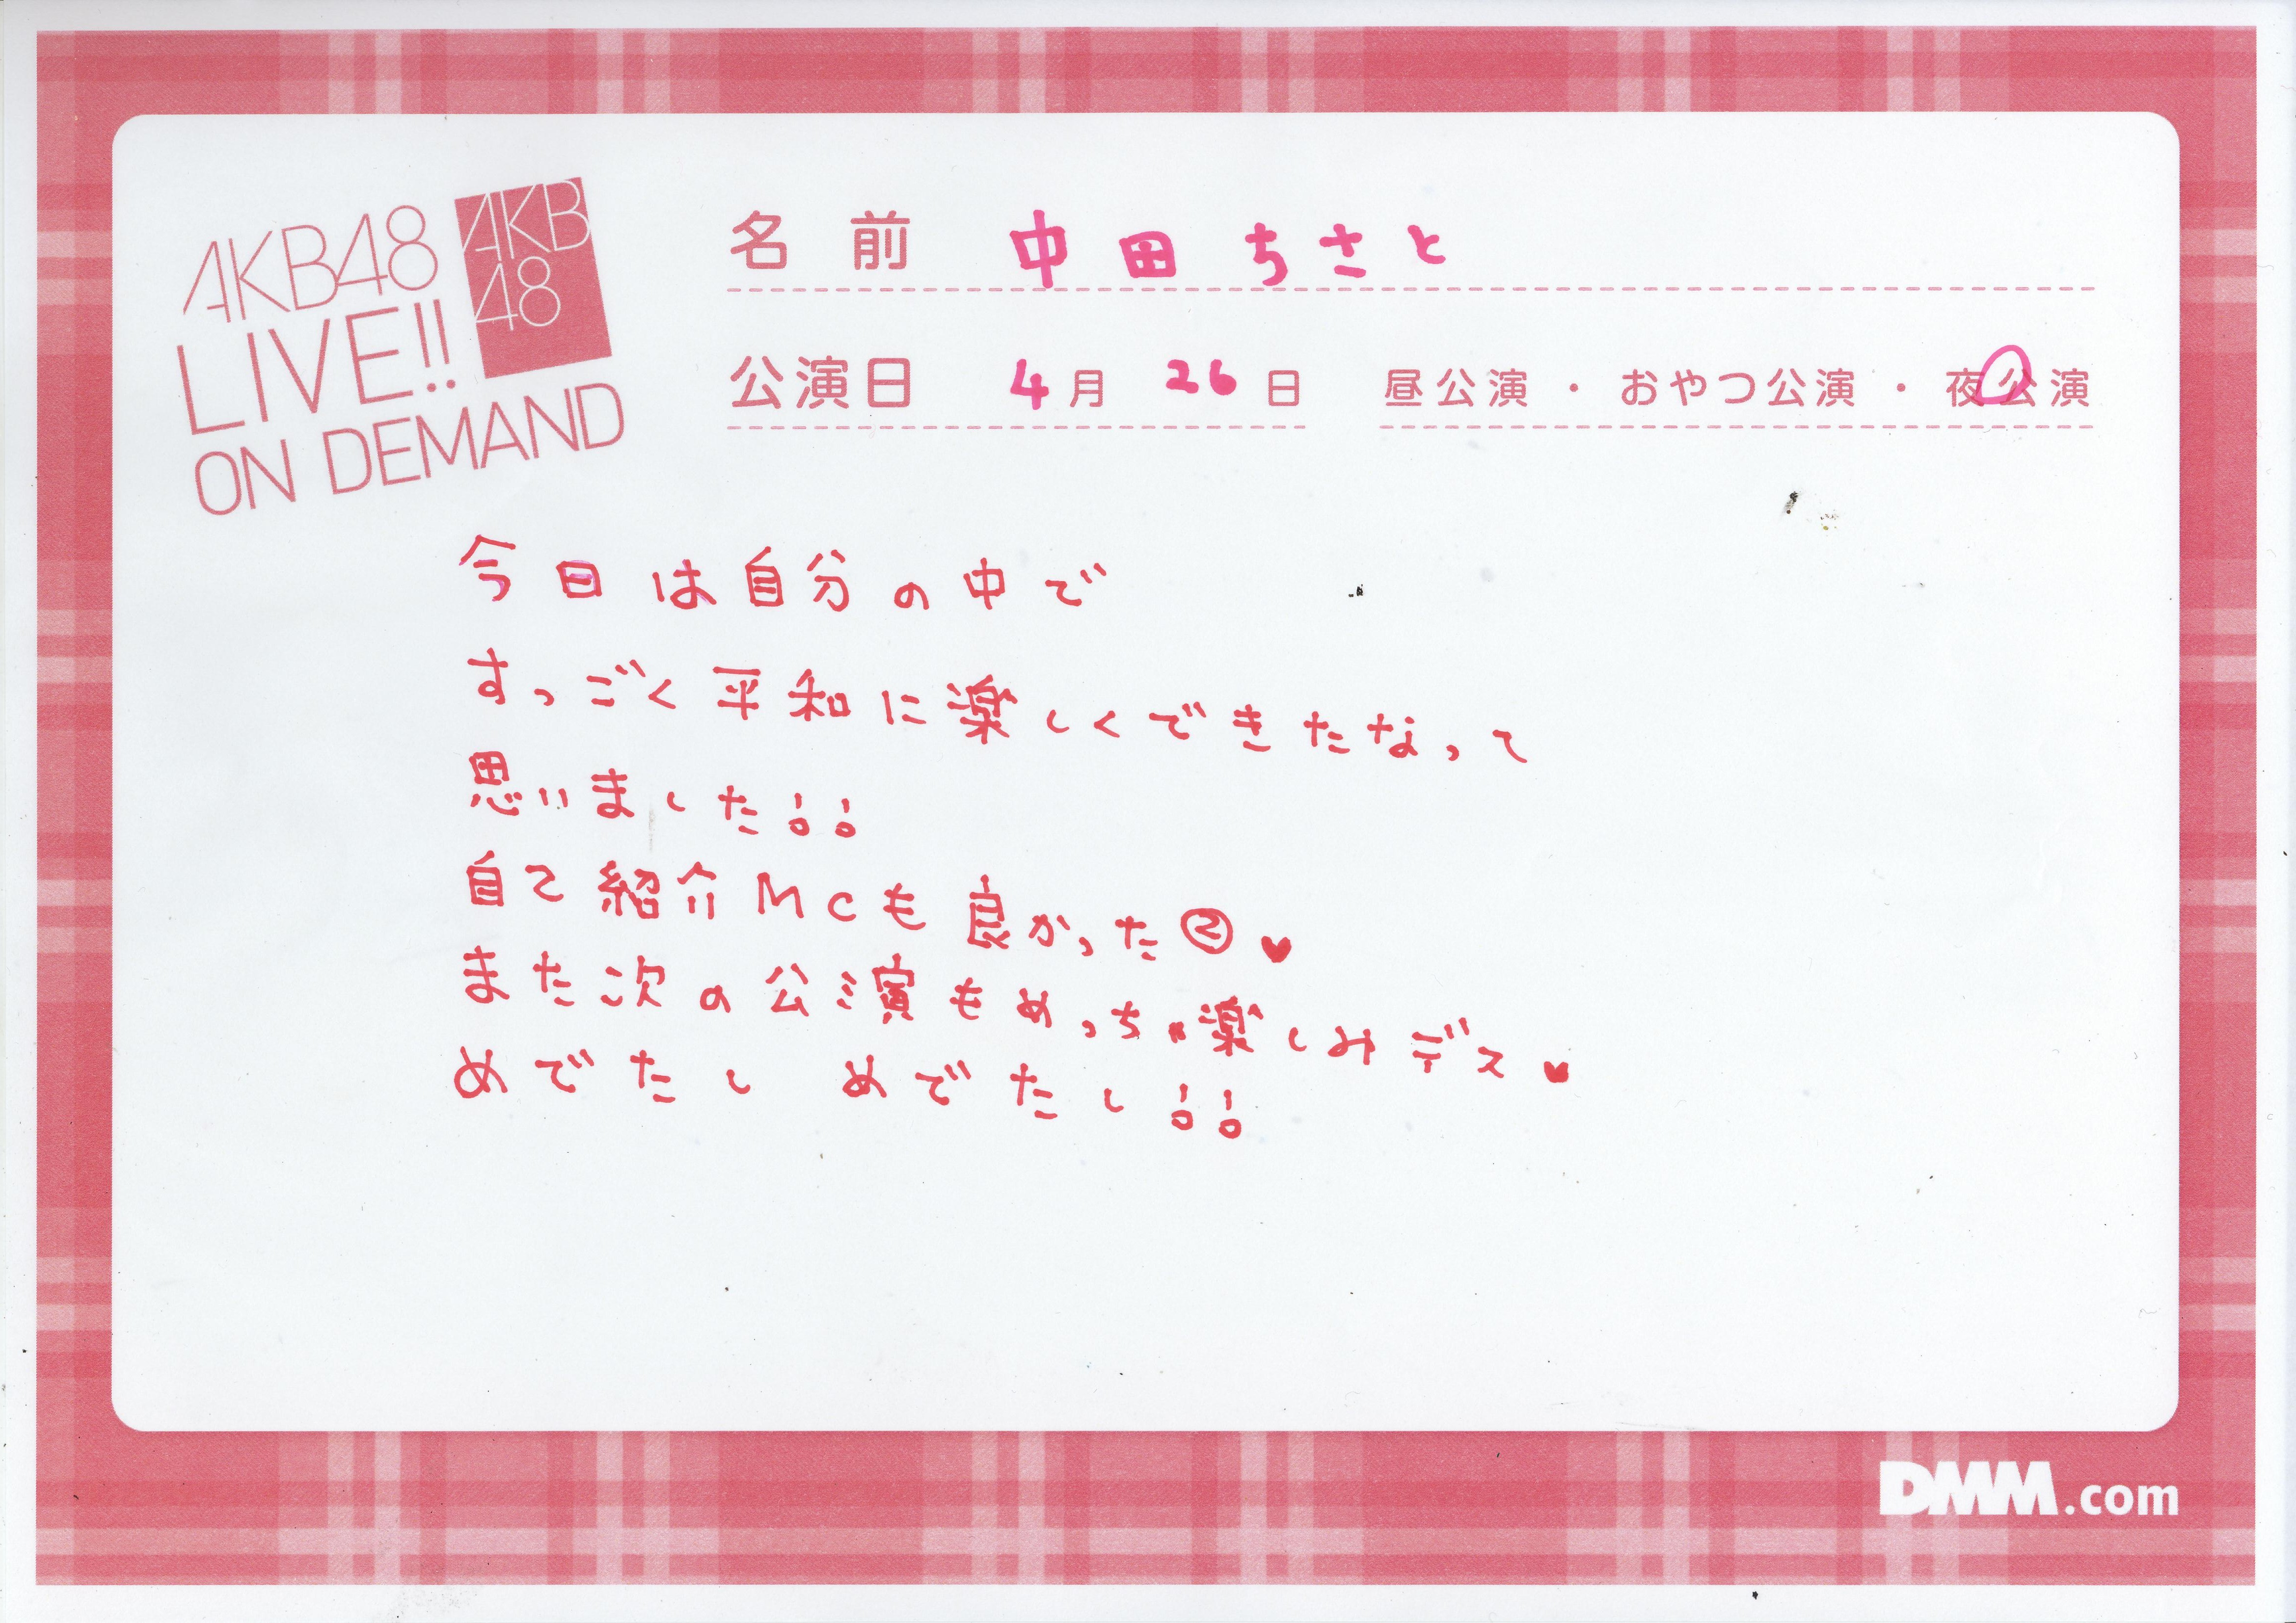 AKB48
LIVE!!
ON DEMAND
AKB
48
名前 中田ちさと
公演日 4月26日 昼公演・おやつ公演・夜公演
今日は自分の中で
すっごく平和に楽しくできたなって
思いました!!
自己紹介MCも良かった②♥
また次の公演もめっちゃ楽しみデス♥
めでたし めでたし!!
DMM.com